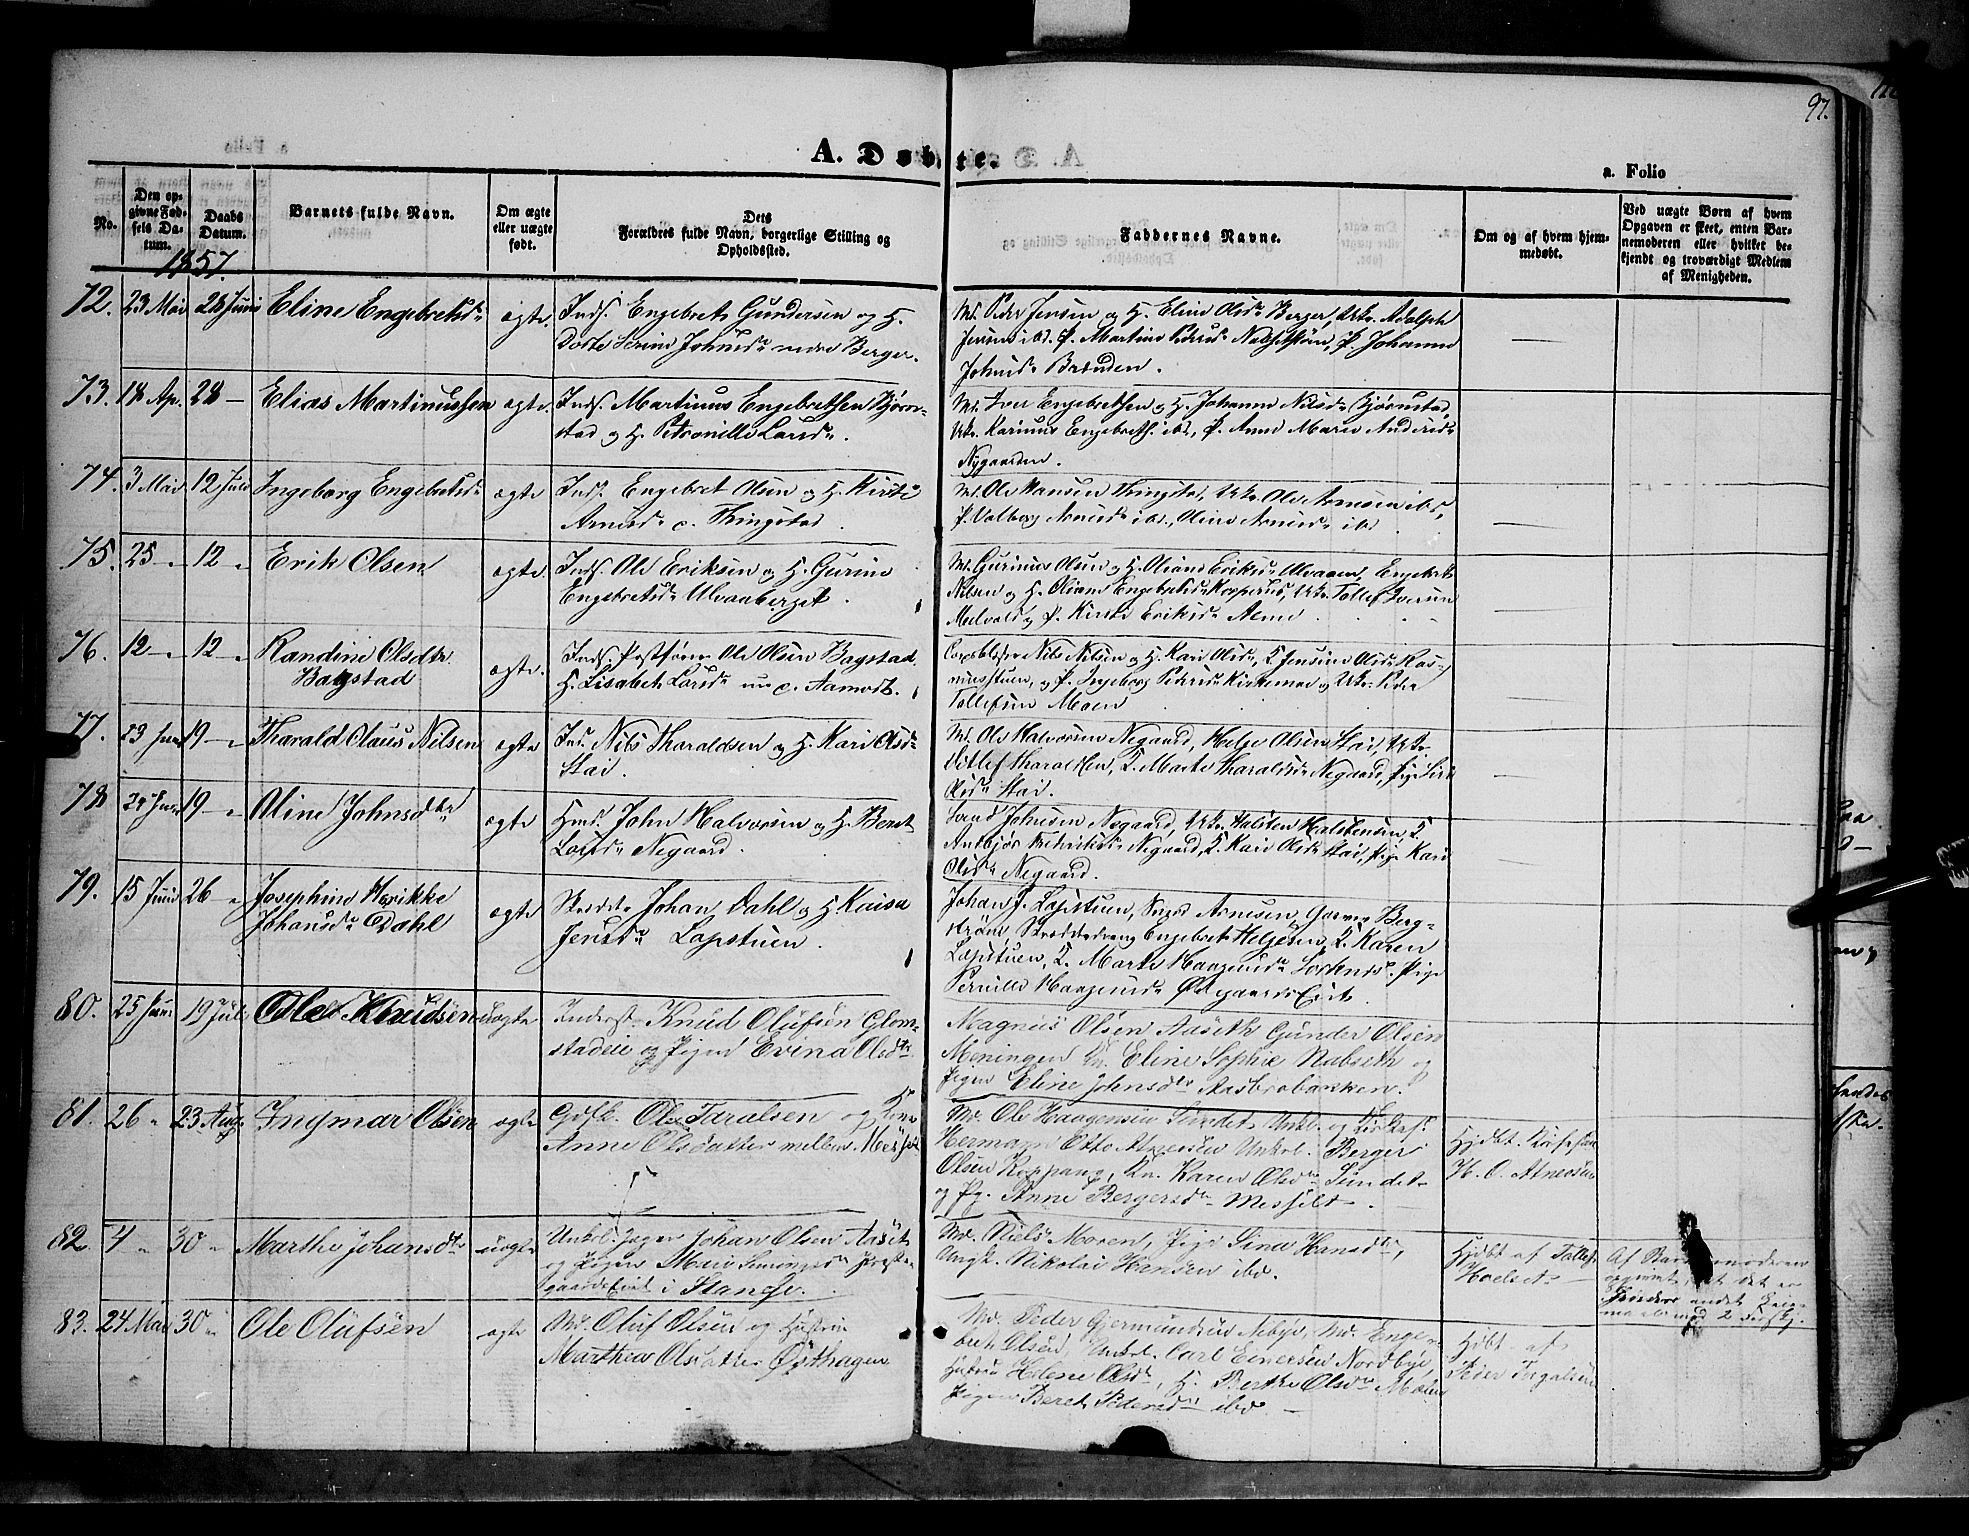 97.
A. Døbte.
a. Folio
No.
Den opgivne Fødsels Datum.
Daabs Datum.
Barnets fulde Navn.
Om ægte eller uægte født.
Dets Forældres fulde Navn, borgerlige Stilling og Opholdssted.
Faddernes Navne.
Om og af hvem hjemmedøbt.
Ved uægte Børn af hvem Opgaven er skeet, enten Barnemoderen eller hvilket bekjendt og troværdigt Medlem af Menigheden.
1857.
72. 23 Mai 28 Juni Eline Engebretsdr ægte. Inds. Engebret Gundersen og H.
Dorte Serine Johnsdr nedre Berger.
M. Peder Jensen og H. Eline Olsdr Berger, Ukr. Adolph
Jensen ibd. P. Martine Pedersd P. Johanne
Johnsdr Brænden.
73. 18 Ap. 28 — Elias Martinussen ægte. Inds. Martinus Engebrethsen Bjørn-
stad og H. Petronille Larsdr.
M. Iver Engebrethsen og H. Johanne Nilsdr Bjørnstad,
Ukr. Karinus Engebreths. ibd, P. Anne Marie Andersdr
Nygaarden.
74. 3 Mai 12 Juli Ingeborg Engebretsdr ægte Inds. Engebret Olsen og H. Kirsti
Arnesdr c. Thingstad.
M. Ole Hansen Thingstad, Ukr. Ole Arnesen ibd,
P. Valborg Arnesdr ibd., Oline Arnesdr ibd.
75. 25 — 12 „ Erik Olsen ægte. Inds. Ole Eriksen og H. Gurine
Engebretsdr Ulvaaberget.
M. Gurinus Olsen og H. Oliane Eriksdr Ulvaaen, Engebret
Nilsen og H. Oliane Engebretsdr Ukr. Tollef Iversen
P. Kirsti Eriksdr
76. 12 — 12 „ Randine Olsdtr
Bagstad
ægte. Inds. Postfører Ole Olsen Bagstad
H. Lisabeth Larsdr c. Aamodt.
Nils Nilsen og H. Kari Olsdr, K. Jensine Olsdr Ras-
musstuen, og P. Ingeborg Pedersdr Kirkemoe og Ukr. Peder
Tollefsen Moen
77. 23 Juni 19 — Tharald Olaus Nilsen ægte Ind. Nils Tharaldsen og H. Kari Olsdr
Stai.
M. Ole Halvorsen Negaard, Helge Olsen Stai, Ukr.
Ditlef Tharaldsen, K. Marte Tharaldsdr Negaard, Pige Siri
Olsdr Stai.
78 19 — Oline Johnsdtr ægte Hmd. John Halvorsen og H. Beret
Larsdr Negaard.
Johnsen Negaard, Ukr. Halsten Halstensen, K.
Negaard, K. Kari Olsdr Stai, Pige Kari
Olsdr Negaard.
79. 15 Juni 26 — Josephine Henrikke
Johansdr Dahl
ægte Skrædder Johan Dahl og H. Kaisa
Jensdr Lapstuen.
Johan J. Lapstuen, Arnesen, Garver Berg-
strøm Skrædderdreng Engebret Helgesen, K. Karen
Lapstuen, K. Marte Haagensdr Pige
Pernille Haagensdr Ødegaards Eiet.
80. 25 Juni 19 Juli Ole Knudsen Uægte Inderst Knud Olufsen Glom-
stadeie og Pigen Evina Olsdtr
Magnus Olsen Aaseth Gunder Olsen
Meningen Eline Sophie Nabseth og
Pigen Eline Johnsdtr Aasbrobakken.
81. 26 „ 23 Aug. Ingmar Olsen ægte Gdbr. Ole Taralsen og Kone
Anne Olsdatter mellem Messelt
M. Ole Haagensen Sundet Unkl. og Kirkes.
Hermann Otto Atnesen Unkar. Berger
Olsen Koppang, Kn. Karen Olsdtr Sundet
og Pg. Anne Bergersdr Messelt.
Hjdbt.
H. O. Atnesen
82. 4 „ 30 „ Marthe Johansdtr uægte Unkbl. Jæger Johan Olsen Aaset
og Pigen Mari Simensdr Preste-
gaardseiet i Stange.
M. Niels Moren, Pige Sina Hansdtr,
Ungk. Nikolai Hansen ibd.
Hjdbt af Tollef
Hoelset
Af Barnemoderen
83. 24 Mai 30 „ Ole Olufsen ægte M. Oluf Olsen og Hustru
Marthea Olsdatter Østhagen
M. Peder Germundsen Nebye, M. Enge-
bret Olsen, Unkbl. Carl Einersen Nordbye,
Hustru Helene Olsdr, H. Berthe Olsdr
Pigen Beret Pedersdr ibd. —
Hjdbt af
Peder Ingalsen